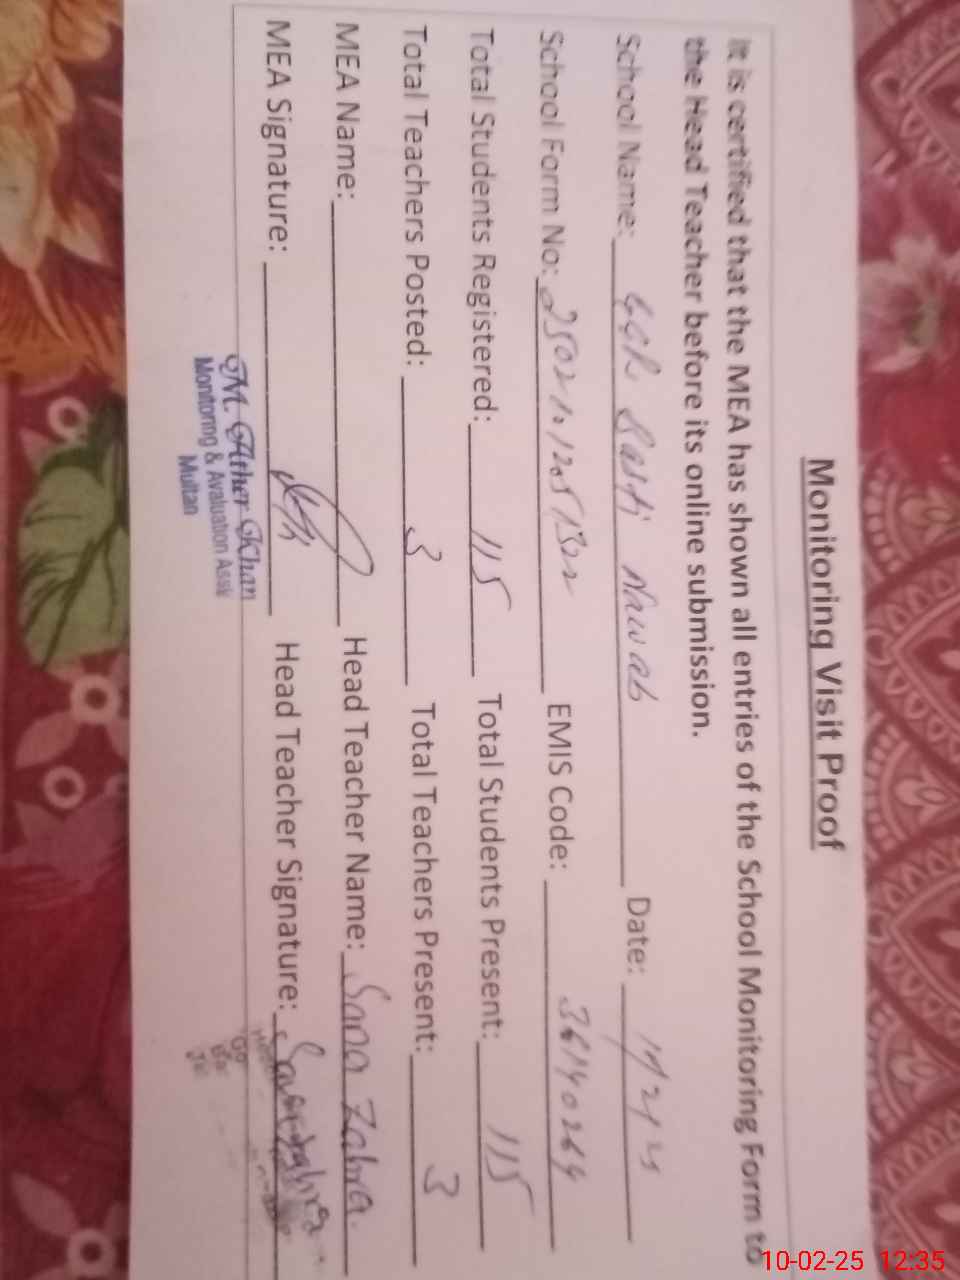 Monitoring Visit Proof
It is certified that the MEA has shown all entries of the School Monitoring Form to
the Head Teacher before its online submission.
School Name: Basti Nawab Date:
School Form No: EMIS Code: 36140264
Total Students Registered: 115 Total Students Present: 115
Total Teachers Posted: 3 Total Teachers Present: 3
MEA Name: Head Teacher Name: Sana Zahra.
MEA Signature: Head Teacher Signature:
M. Ather Khan
Monitoring & Avaluation Asstt
Multan
10-02-25 12:35